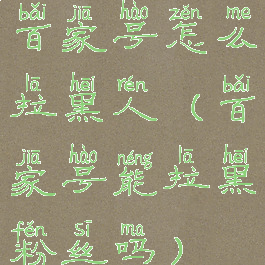 bǎi jiā hào zěn me
百家号怎么
lā hēi rén bǎi
拉黑人(百
jiā hào néng lā hēi
家号能拉黑
fěn sī ma
粉丝吗)